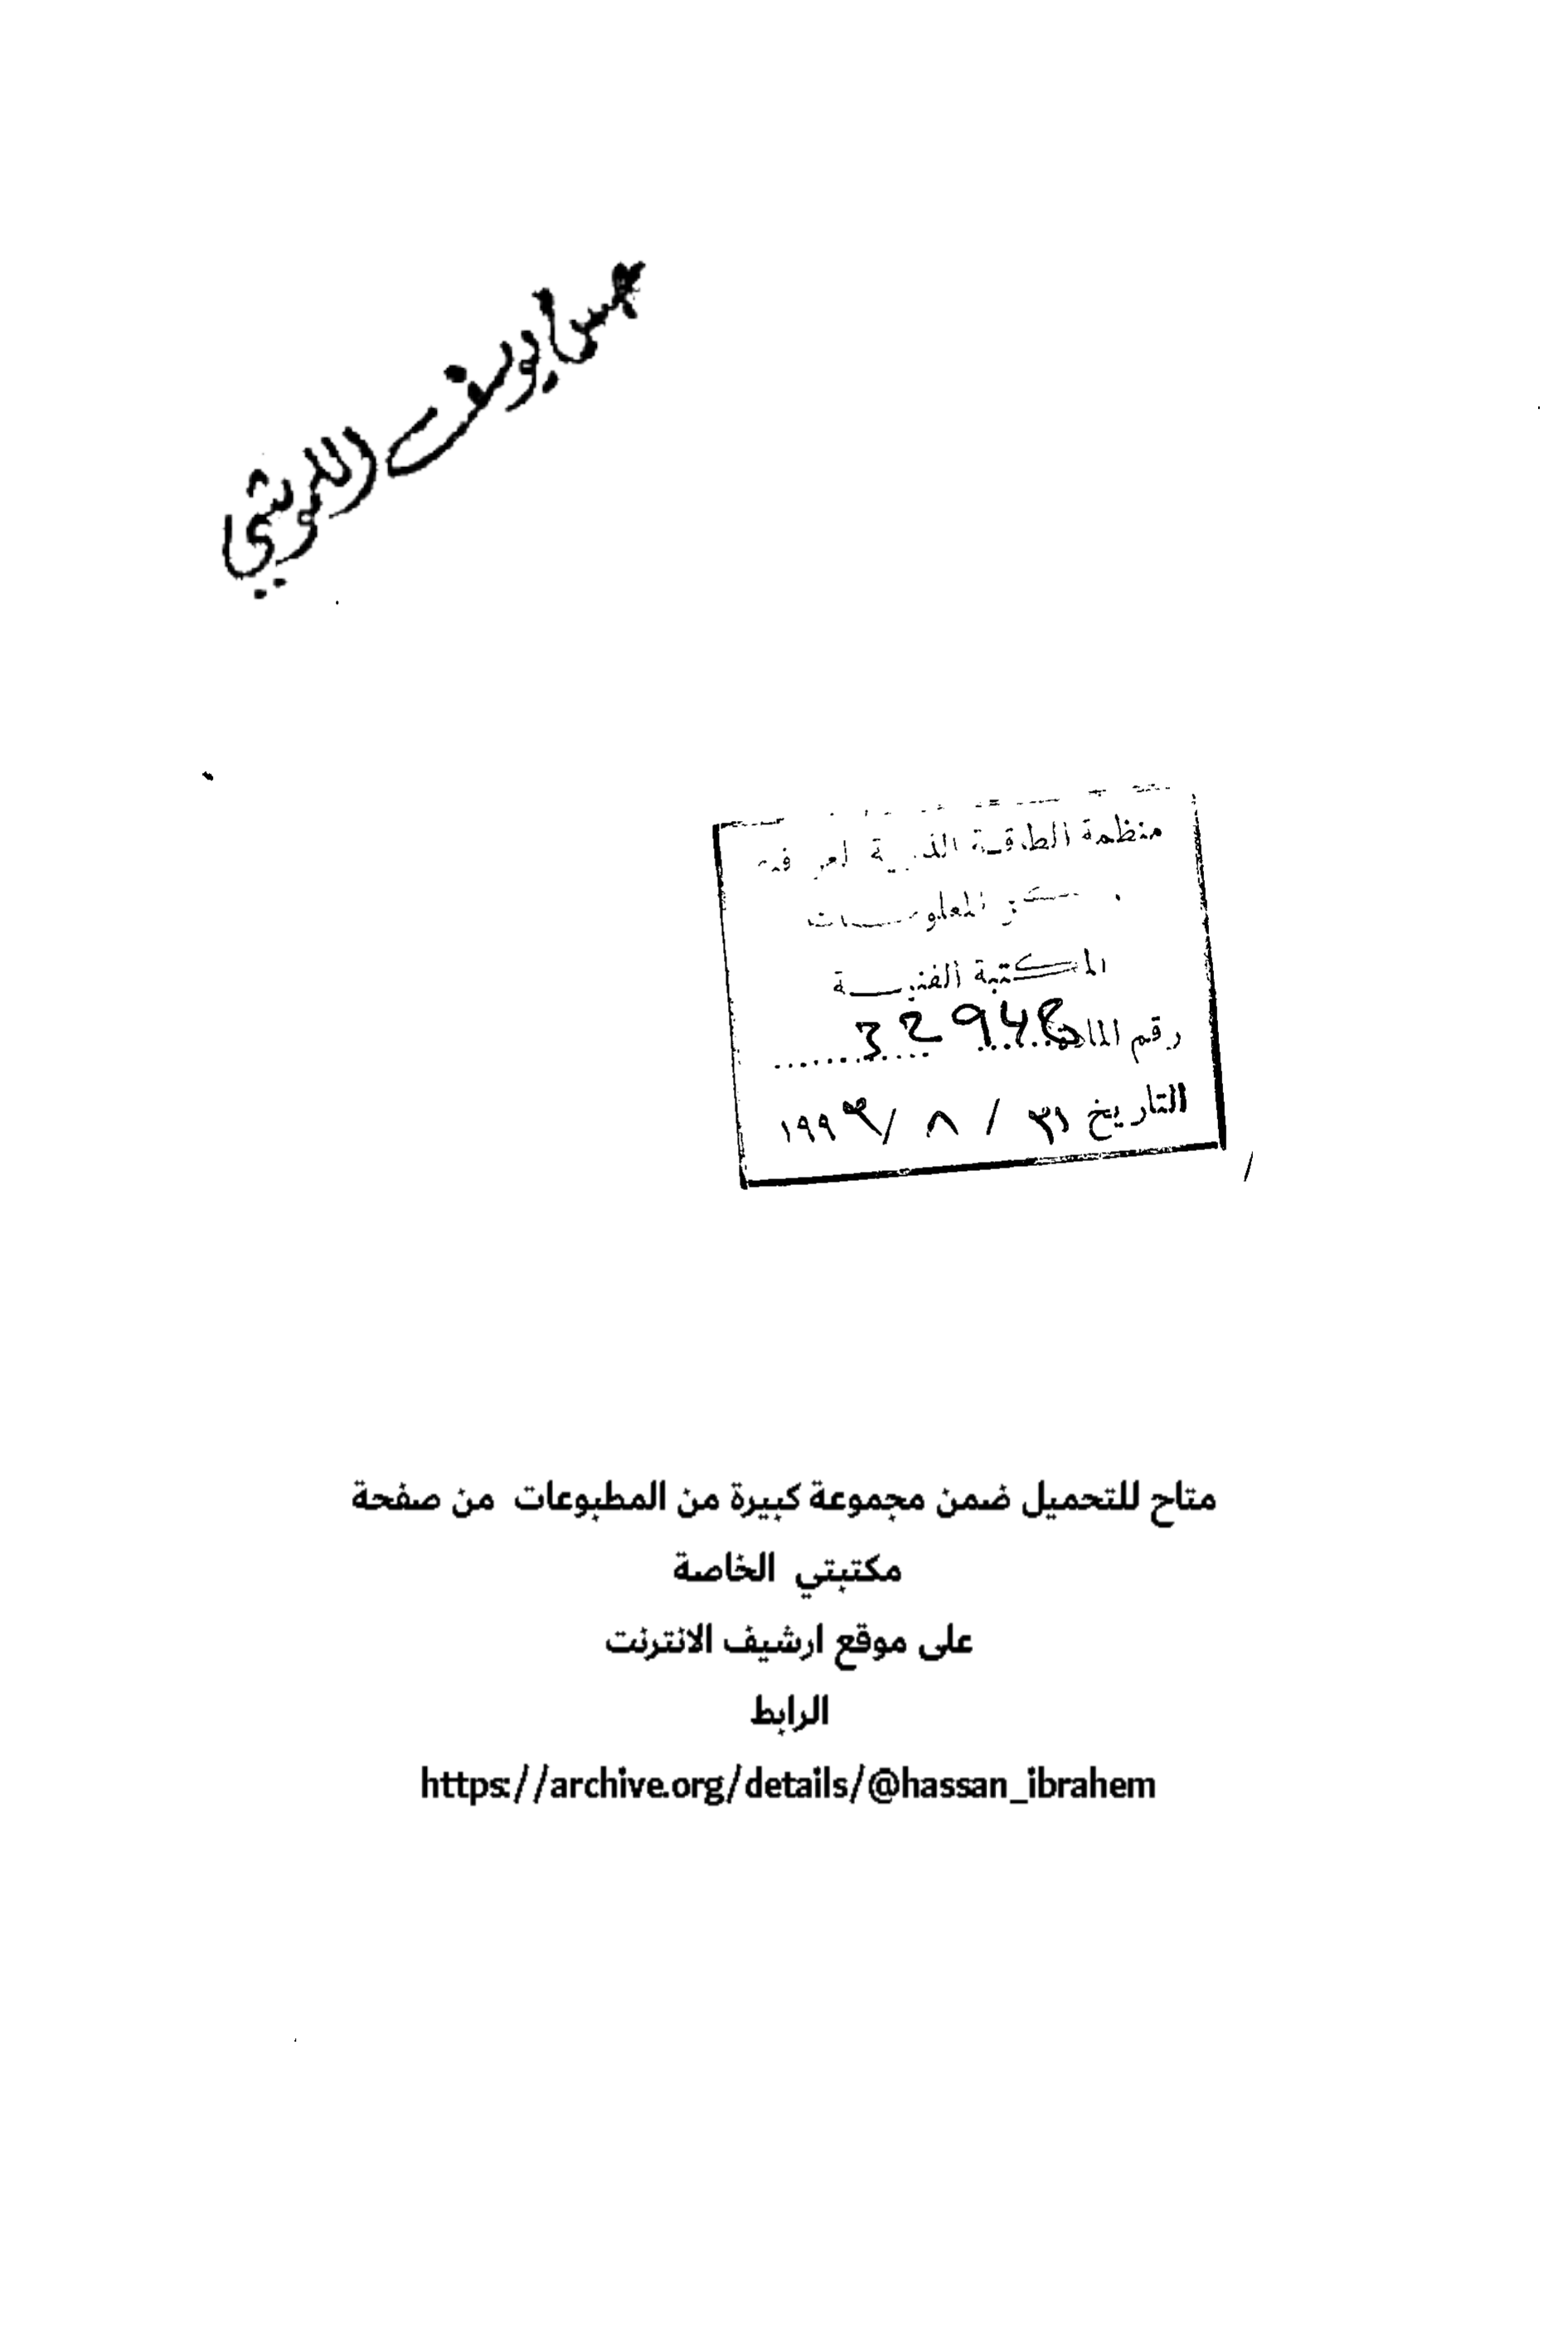 يوسف
منظمة الطاقة الذرية
المعلومات
المكتبة الفنيـــة
رقم المادة 32948
التاريخ ٣١ / ٨ / ١٩٩٣
متاح للتحميل ضمن مجموعة كبيرة من المطبوعات من صفحة
مكتبتي الخاصة
على موقع ارشيف الانترنت
الرابط
https://archive.org/details/@hassan_ibrahem